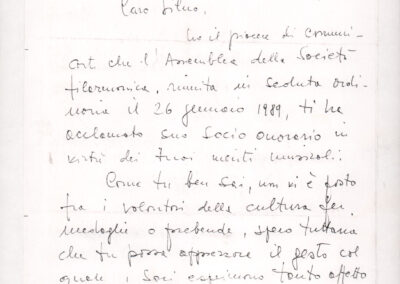 Caro Silvio,
ho il piacere di comuni-
carti che l'Assemblea della Società
filarmonica, riunita in seduta ordi-
naria il 26 gennaio 1989, ti ha
acclamato suo Socio onorario in
virtù dei Tuoi meriti musicali.
Come tu ben sai, non vi è posto
fra i volontari della cultura per
medaglie o prebende, spero tuttavia
che tu possa apprezzare il gesto col
quale i Soci esprimono tanto affetto